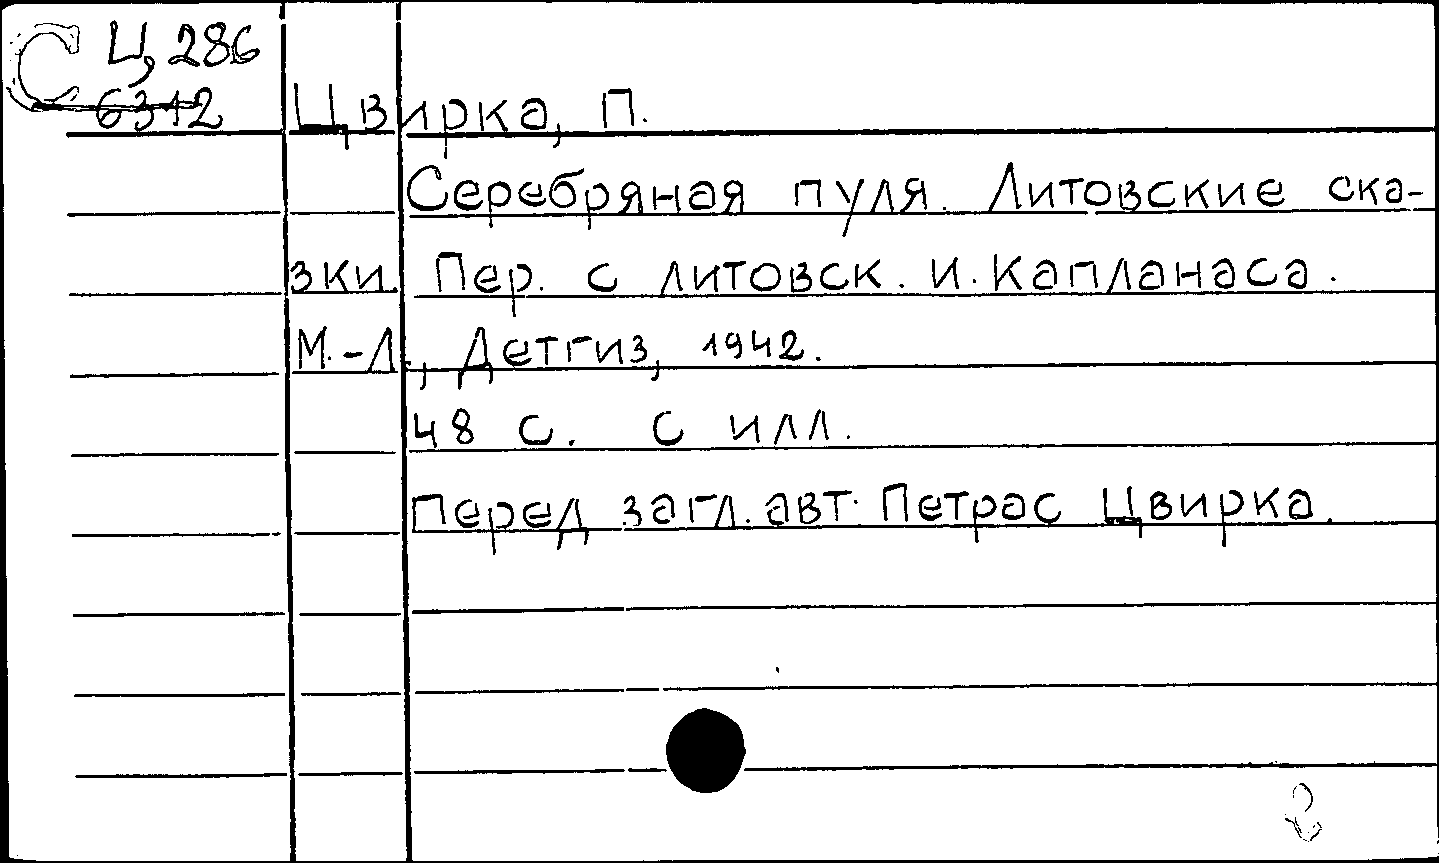 С Ц 286
6312
Цвирка, П.
Серебряная пуля. Литовские ска-
зки. Пер. с литовск. И. Капланаса.
М.-Л., Детгиз, 1942.
48 с. с илл.
Перед загл. авт. Петрас Цвирка.